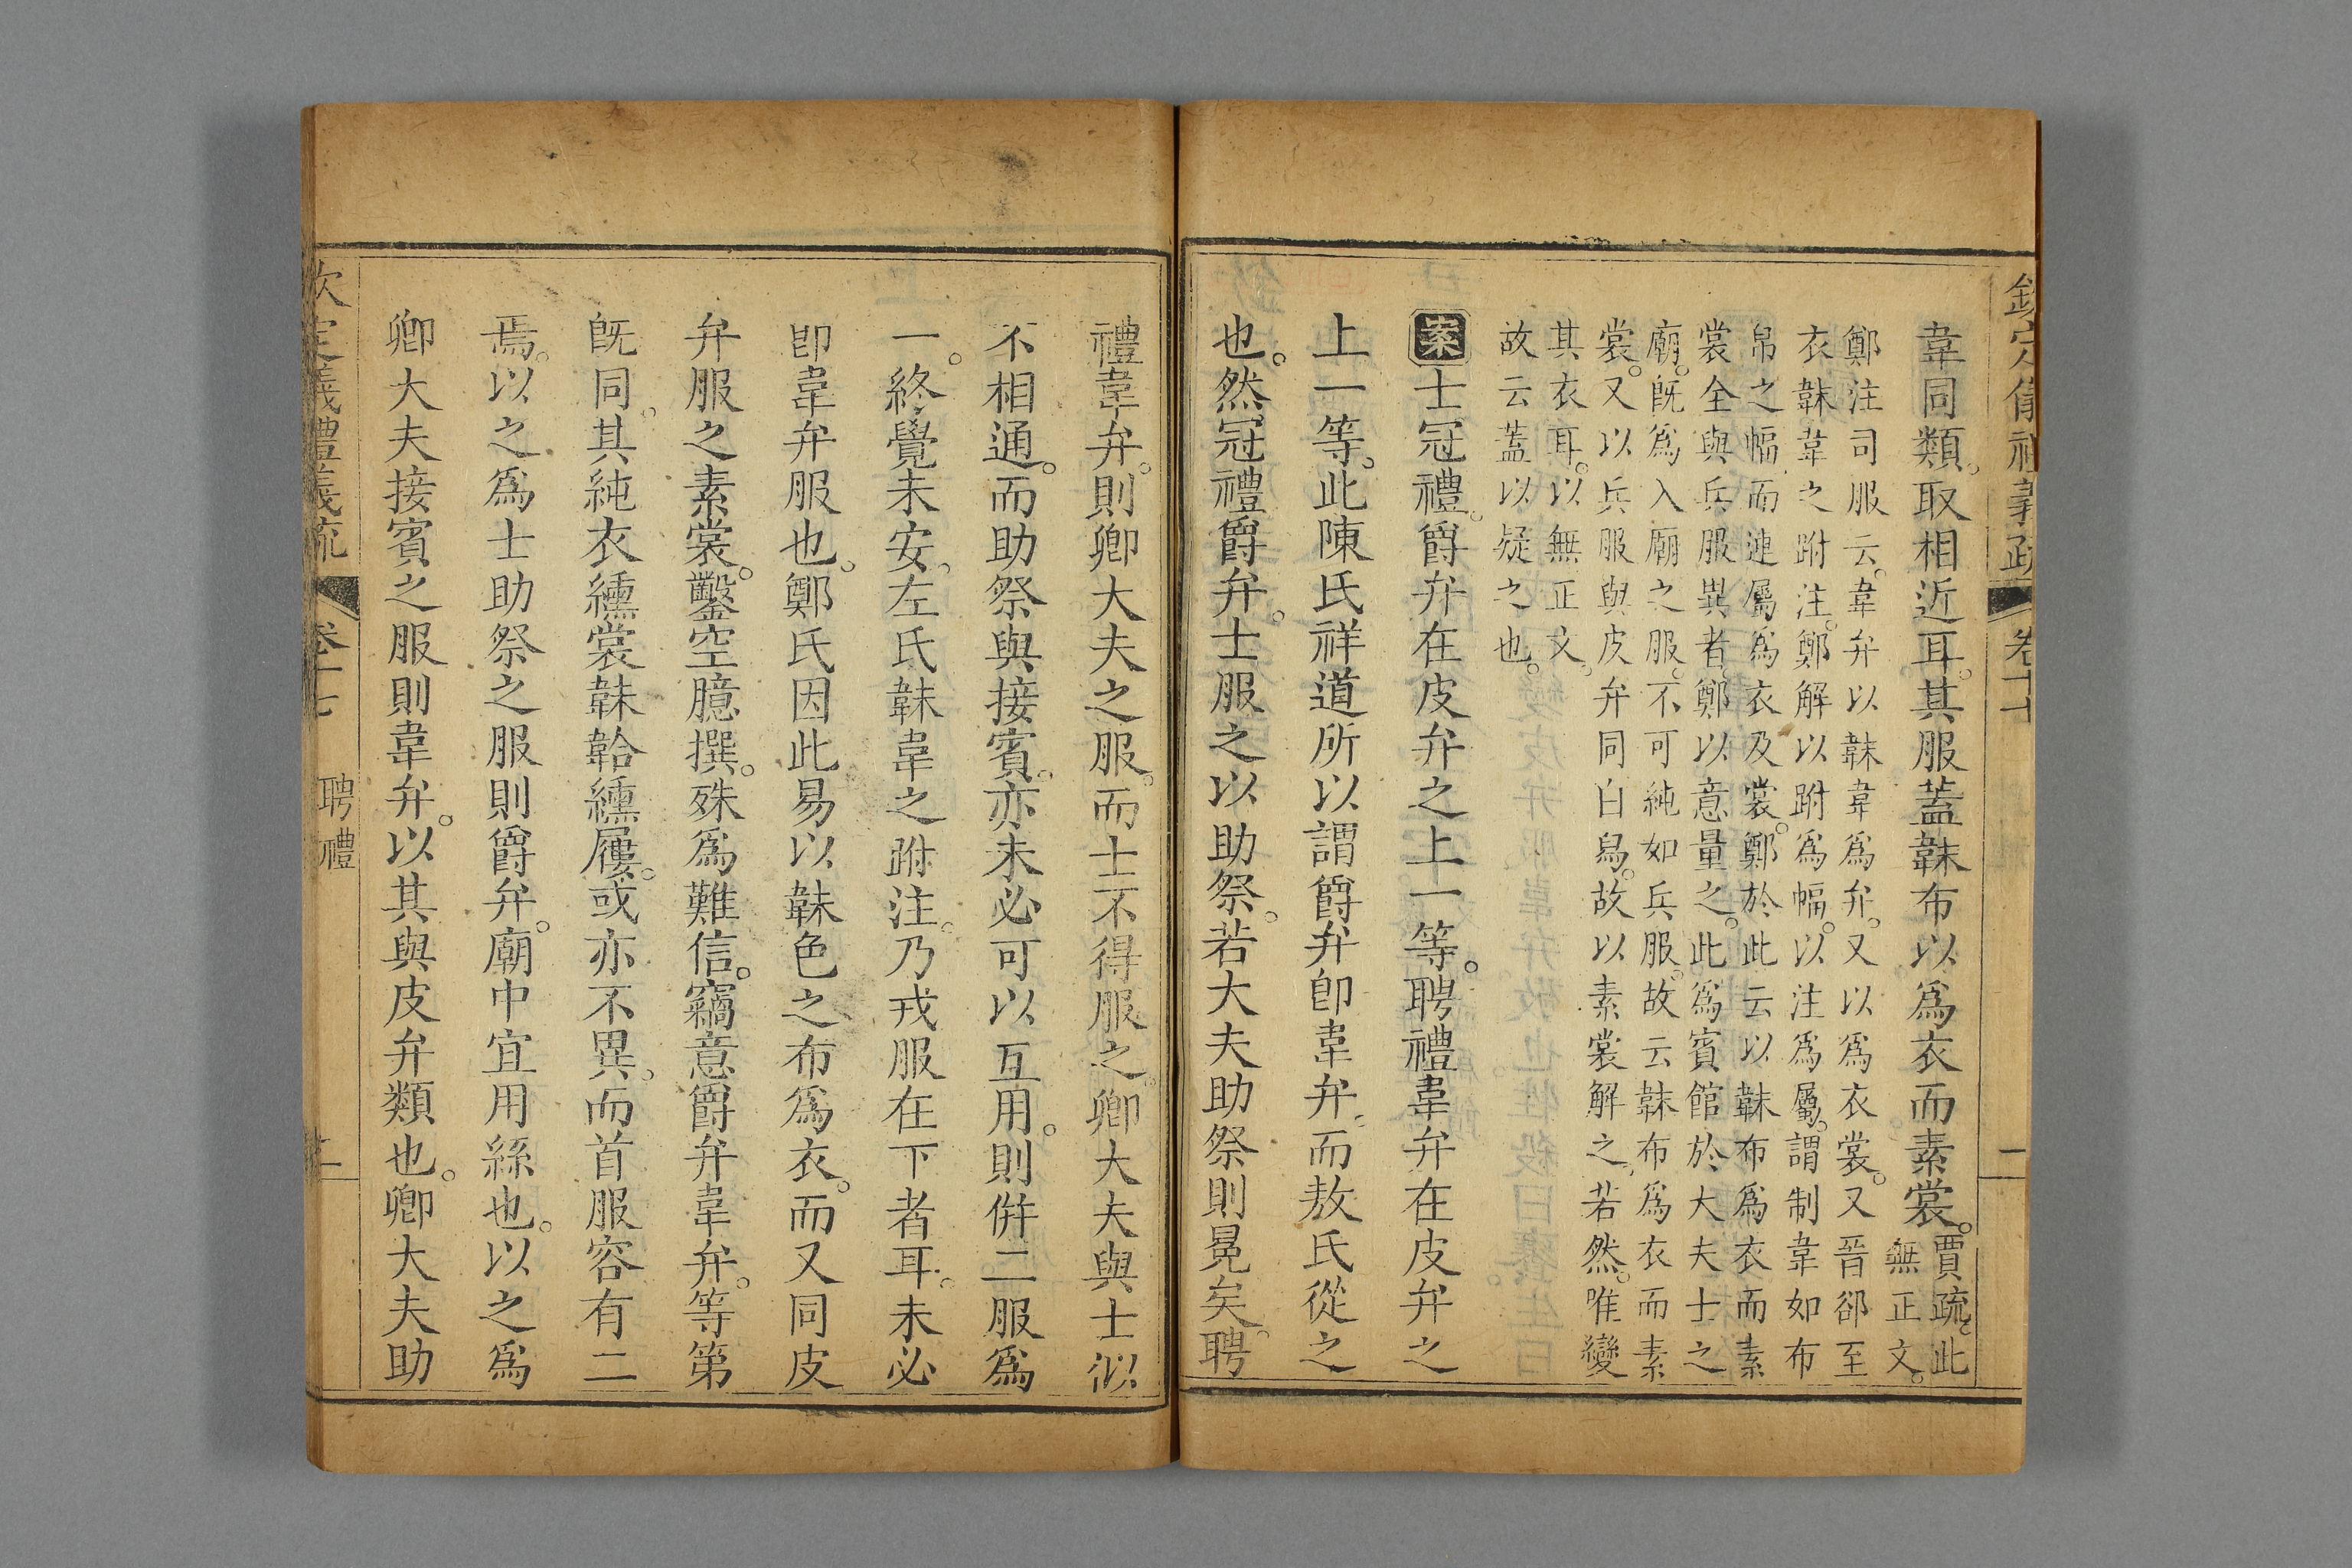 韋同類。取相近耳。其服蓋韎布以爲衣而素裳。賈疏。此
無正文。
鄭注司服云。韋弁以韎韋爲弁。又以爲衣裳。又晉郤至
衣韎韋之跗注。鄭解以跗爲幅。以注爲屬。謂制韋如布
帛之幅而連屬爲衣及裳。鄭於此云以韎布爲衣而素
裳全與兵服異者。鄭以意量之。此爲賓館於大夫士之
廟。旣爲入廟之服。不可純如兵服。故云韎布爲衣而素
裳。又以兵服與皮弁同白舄。故以素裳解之。若然。唯變
其衣耳。以無正文。
故云蓋以疑之也。
案士冠禮。爵弁在皮弁之上一等。聘禮韋弁在皮弁之
上一等。此陳氏祥道所以謂爵弁卽韋弁。而敖氏從之
也。然冠禮爵弁。士服之以助祭。若大夫助祭則冕矣。聘
禮韋弁。則卿大夫之服。而士不得服之。卿大夫與士似
不相通。而助祭與接賓。亦未必可以互用。則併二服爲
一。終覺未安。左氏韎韋之跗注。乃戎服在下者耳。未必
卽韋弁服也。鄭氏因此易以韎色之布爲衣。而又同皮
弁服之素裳。鑿空臆撰。殊爲難信。竊意爵弁韋弁。等第
旣同。其純衣纁裳韎韐纁屨。或亦不異。而首服容有二
焉。以之爲士助祭之服則爵弁。廟中宜用絲也。以之爲
卿大夫接賓之服則韋弁。以其與皮弁類也。卿大夫助
欽定儀禮義疏 卷十七 聘禮